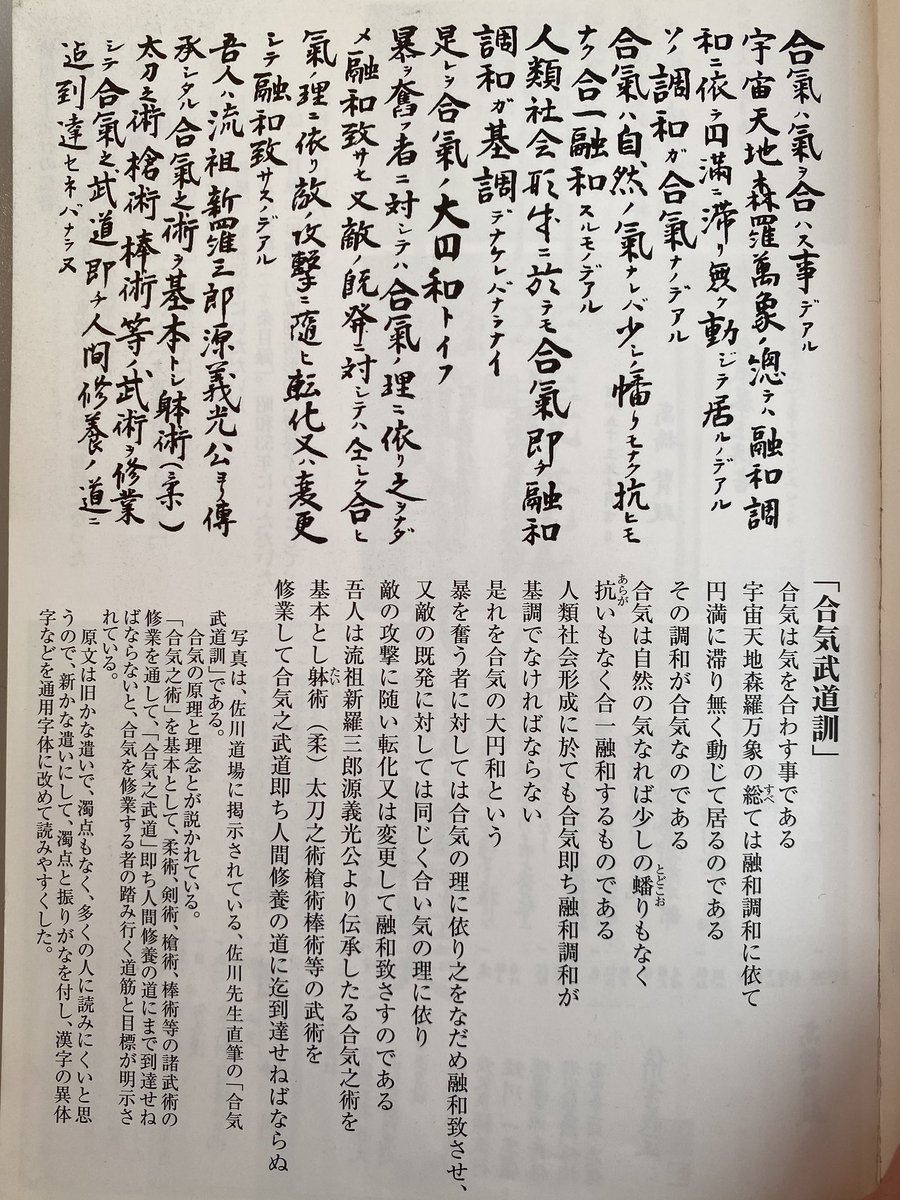 合氣ハ氣ヲ合ハス事デアル
宇宙天地森羅萬象ノ總テハ融和調
和ニ依テ円満ニ滞リ無ク動ジテ居ルノデアル
ソノ調和ガ合氣ナノデアル
合氣ハ自然ノ氣ナレバ少シノ蟠リモナク抗ヒモ
ナク合一融和スルモノデアル
人類社会形成ニ於テモ合氣即チ融和
調和ガ基調デナケレバナラナイ
是レヲ合氣ノ大円和トイフ
暴ヲ奮フ者ニ対シテハ合氣ノ理ニ依リ之ヲナダ
メ融和致サセ又敵ノ既発ニ対シテハ仝シク合ヒ
氣ノ理ニ依リ敵ノ攻撃ニ隨ヒ転化又ハ変更
シテ融和致サスノデアル
吾人ハ流祖新羅三郎源義光公ヨリ傳
承シタル合氣之術ヲ基本トシ躰術(柔)
太刀之術槍術棒術等ノ武術ヲ修業
シテ合氣之武道即チ人間修養ノ道ニ
迠到達セネバナラヌ
「合気武道訓」
合気は気を合わす事である
宇宙天地森羅万象の総ては融和調和に依て
すべ
円満に滞り無く動じて居るのである
その調和が合気なのである
合気は自然の気なれば少しの蟠りもなく
とどこお
抗いもなく合一融和するものである
あらが
人類社会形成に於ても合気即ち融和調和が
基調でなければならない
是れを合気の大円和という
暴を奮う者に対しては合気の理に依り之をなだめ融和致させ、
又敵の既発に対しては同じく合い気の理に依り
敵の攻撃に随い転化又は変更して融和致さすのである
吾人は流祖新羅三郎源義光公より伝承したる合気之術を
基本とし躰術(柔)太刀之術槍術棒術等の武術を
たい
修業して合気之武道即ち人間修養の道に迄到達せねばならぬ
写真は、佐川道場に掲示されている、佐川先生直筆の「合気
武道訓」である。
合気の原理と理念とが説かれている。
「合気之術」を基本として、柔術、剣術、槍術、棒術等の諸武術の
修業を通して、「合気之武道」即ち人間修養の道にまで到達せね
ばならないと、合気を修業する者の踏み行く道筋と目標が明示さ
れている。
原文は旧かな遣いで、濁点もなく、多くの人に読みにくいと思
うので、新かな遣いにして、濁点と振りがなを付し、漢字の異体
字などを通用字体に改めて読みやすくした。